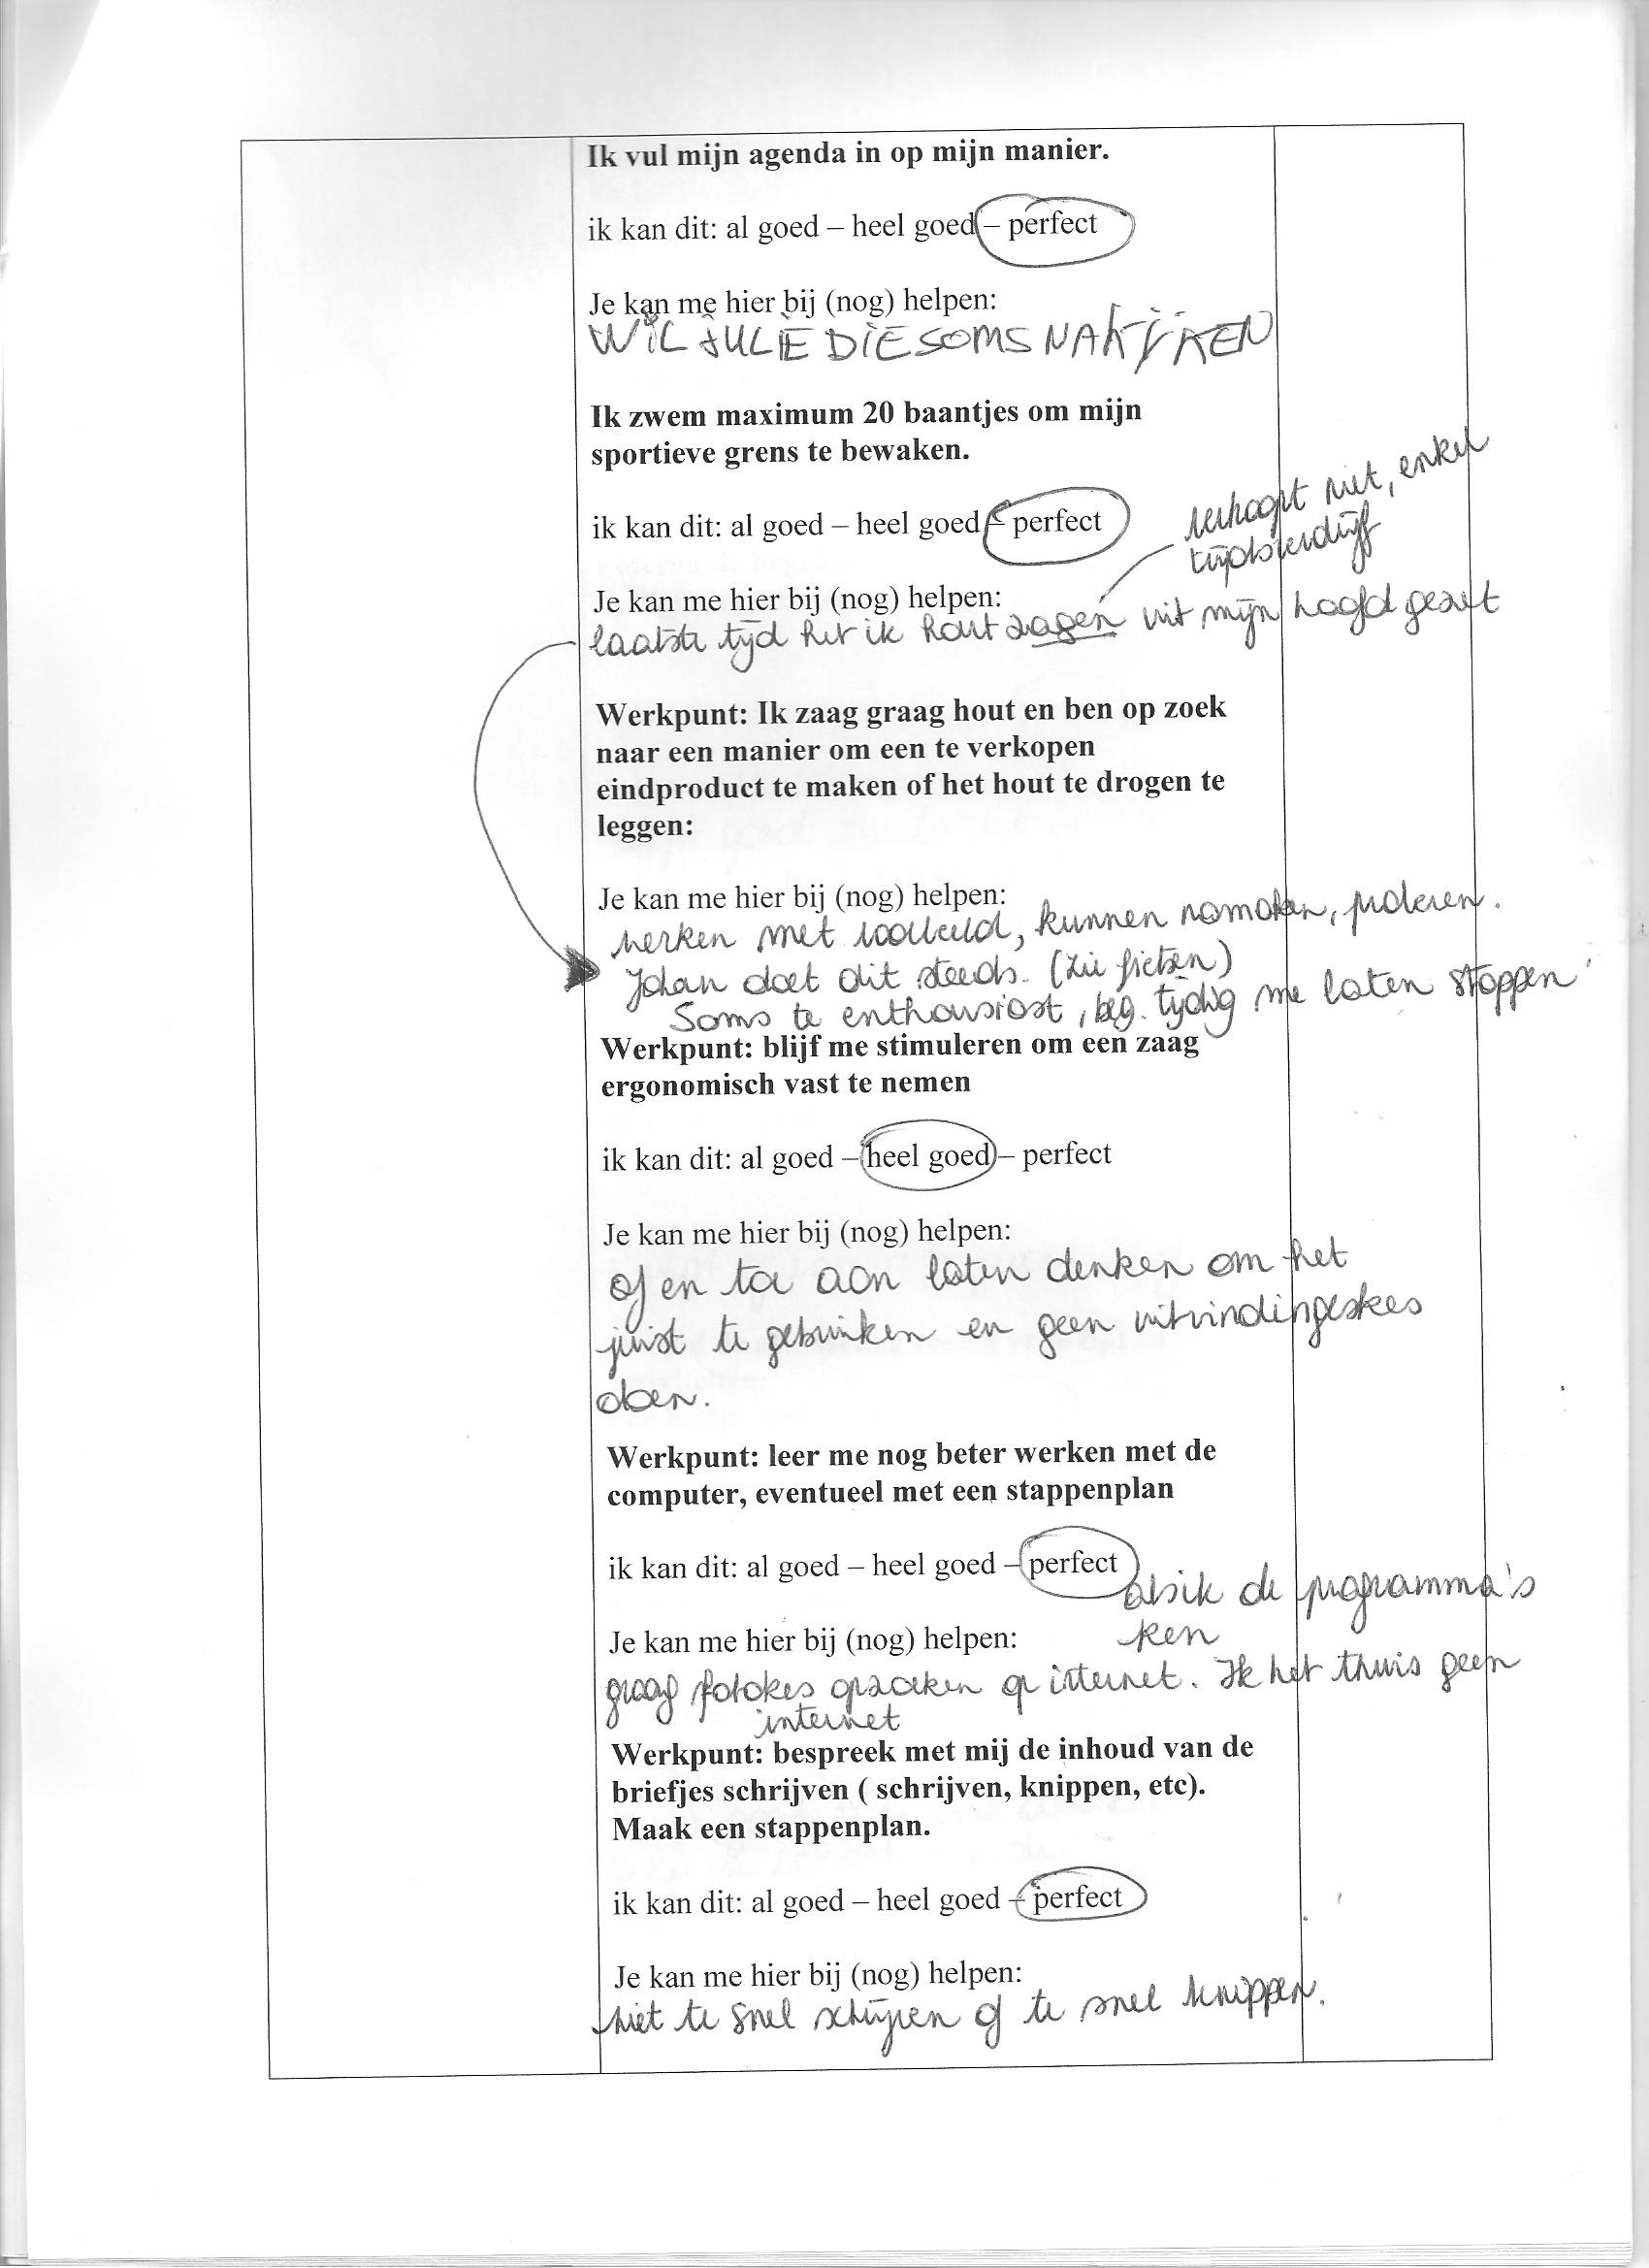 Ik vul mijn agenda in op mijn manier.
ik kan dit: al goed – heel goed – perfect
Je kan me hier bij (nog) helpen:
WIL JULIE DIE SOMS NAKIJKEN
Ik zwem maximum 20 baantjes om mijn
sportieve grens te bewaken.
ik kan dit: al goed – heel goed – perfect
verkoopt niet, enkel
tijdsverdrijf
Je kan me hier bij (nog) helpen:
laatste tijd heb ik hout zagen uit mijn hoofd gezet
Werkpunt: Ik zaag graag hout en ben op zoek
naar een manier om een te verkopen
eindproduct te maken of het hout te drogen te
leggen:
Je kan me hier bij (nog) helpen:
werken met voorbeeld, kunnen namaken,
Johan doet dit steeds. (zie fietsen)
Soms te enthousiast, beg. tijdig me laten stoppen
Werkpunt: blijf me stimuleren om een zaag
ergonomisch vast te nemen
ik kan dit: al goed – heel goed – perfect
Je kan me hier bij (nog) helpen:
af en toe aan laten denken om het
juist te gebruiken en geen uitvindingeskes
doen.
Werkpunt: leer me nog beter werken met de
computer, eventueel met een stappenplan
ik kan dit: al goed – heel goed – perfect
als ik de programma's
ken
Je kan me hier bij (nog) helpen:
graag fotokes opzoeken op internet. Ik heb thuis geen
internet
Werkpunt: bespreek met mij de inhoud van de
briefjes schrijven ( schrijven, knippen, etc).
Maak een stappenplan.
ik kan dit: al goed – heel goed – perfect
Je kan me hier bij (nog) helpen:
niet te snel schrijven of te snel knippen.